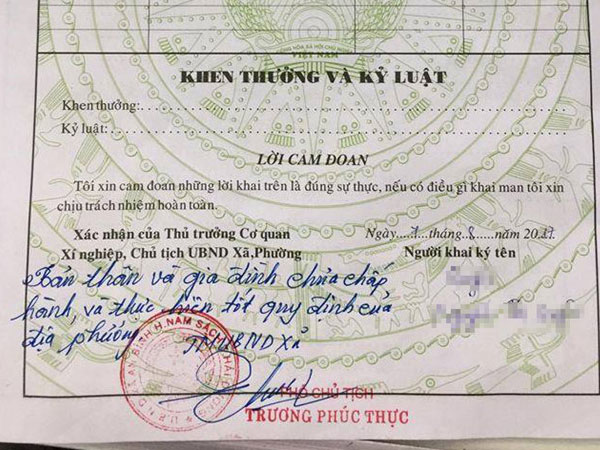 CỘNG HÒA XÃ HỘI CHỦ
VIỆT NAM
KHEN THƯỞNG VÀ KỶ LUẬT
Khen thưởng:
Kỷ luật:
LỜI CAM ĐOAN
Tôi xin cam đoan những lời khai trên là đúng sự thực, nếu có điều gì khai man tôi xin
chịu trách nhiệm hoàn toàn.
Xác nhận của Thủ trưởng Cơ quan
Xí nghiệp, Chủ tịch UBND Xã,Phường
Ngày 7 tháng 8 năm 2017
Người khai ký tên
Bản thân và gia đình chưa chấp
hành, và thực hiện tốt quy định của
địa phương
TM UBND Xã
U.B.N.D XÃ AN BÌNH H.NAM SÁCH T.HẢI DƯƠNG
PHÓ CHỦ TỊCH
TRƯƠNG PHÚC THỰC